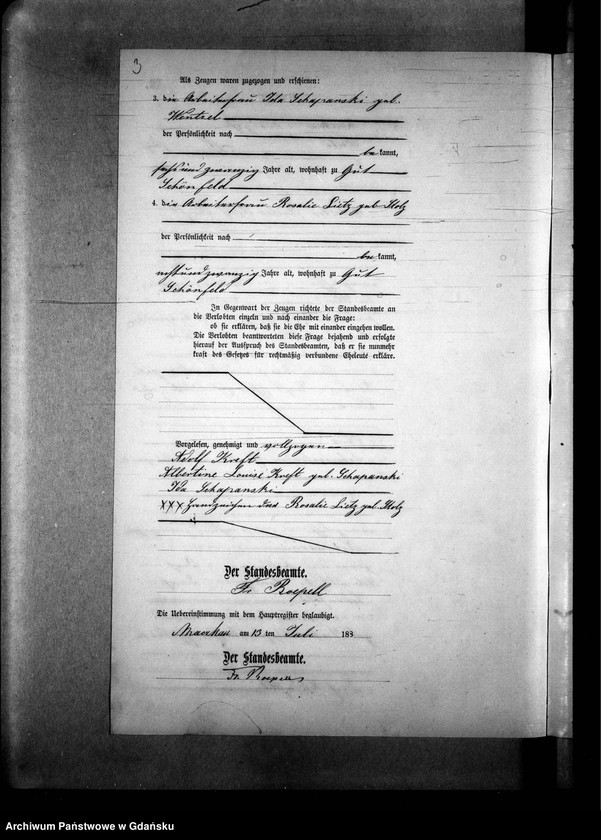 3
Als Zeugen waren zugezogen und erschienen:
3. die Arbeiterfrau Ida Schapanski geb.
Wentzel
der Persönlichkeit nach
be kannt,
sechsundzwanzig Jahre alt, wohnhaft zu Gut
Schönfeld
4. die Arbeiterfrau Rosalie Lietz geb Klotz
der Persönlichkeit nach
be kannt,
achtundzwanzig Jahre alt, wohnhaft zu Gut
Schönfeld
In Gegenwart der Zeugen richtete der Standesbeamte an
die Verlobten einzeln und nach einander die Frage:
ob sie erklären, daß sie die Ehe mit einander eingehen wollen.
Die Verlobten beantworteten diese Frage bejahend und erfolgte
hierauf der Ausspruch des Standesbeamten, daß er sie nunmehr
kraft des Gesetzes für rechtmäßig verbundene Eheleute erkläre.
Vorgelesen, genehmigt und vollzogen
Adolf Kreft
Albertine Louise Kreft geb. Schapanski
Ida Schapanski
XXX Handzeichen der Rosalie Lietz geb. Klotz
Der Standesbeamte.
Fr Roepell
Die Uebereinstimmung mit dem Hauptregister beglaubigt.
am 13 ten Juli 188
Der Standesbeamte.
Fr. Roepell
Archiwum Państwowe w Gdańsku